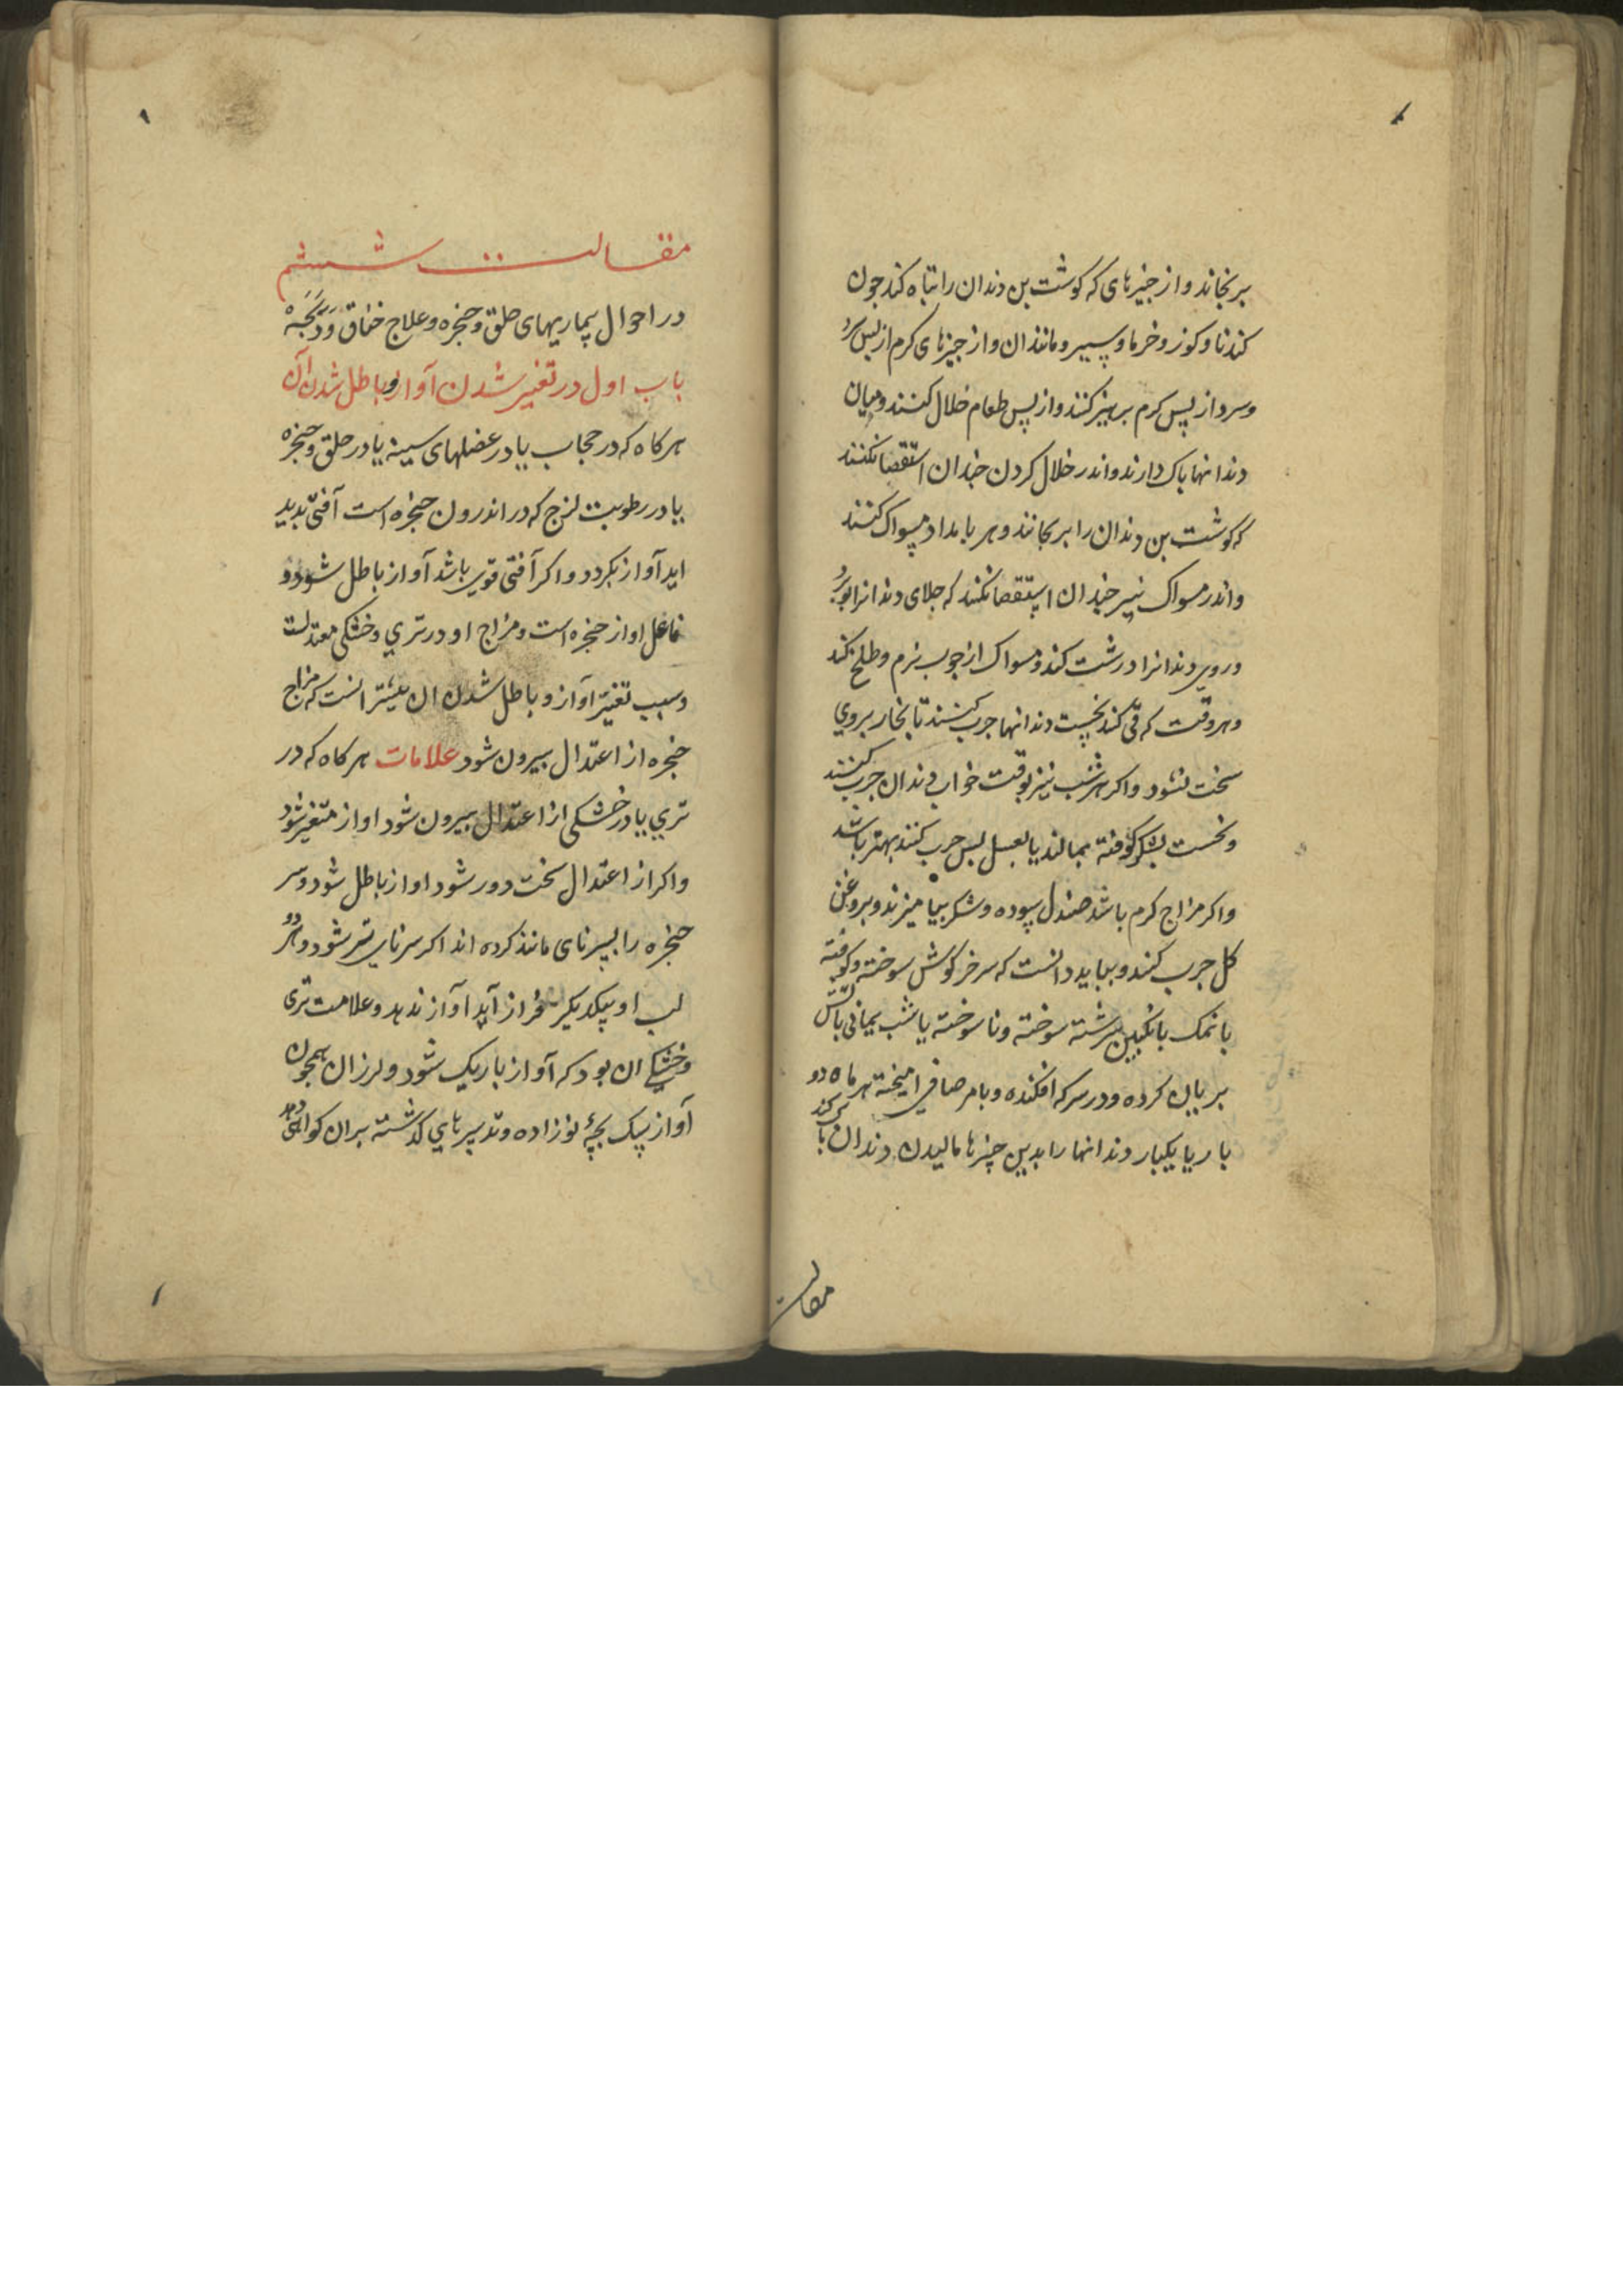 برنجاند و از چیزهای که کوشت بن دندان را تباه کند جون
کندنا و کوز و خرما و سپیر و مانند ان و از جیزهای کرم از پس سرد
و سرد از پس کرم برهیز کنند و از پس طعام خلال کنند و میان
دندانها باک دارند و اندر خلال کردن جندان استقصا نکنند
که کوشت بن دندان را برنجانند و هر بامداد مسواک کنند
و اندر مسواک نیز جندان استقصا نکنند که جلای دندانرا ببرد
و روی دندانرا درشت کند و مسواک از جوب نرم و طلخ کند
و هر وقت که قی کند نخست دندانها جرب کنند تا بخار بروی
سخت نشود و اکر هر شب نیز بوقت خواب دندان جرب کنند
و نخست بشکر کوفته بمالند یا بعسل بس جرب کنند بهتر باشد
و اکر مزاج کرم باشد صندل سوده و شکر بیامیزند و بروغن
کل جرب کنند و بباید دانست که سر خرکوش سوخته و کوفته
با نمک بانکبین سرشته سوخته و ناسوخته یا شب یمانی باتش
بریان کرده و در سرکه افکنده و بامر صافی امیخته هر ماه دو
بار یا یکبار دندانها را بدین چیزها مالیدن دندان باک کند
مقالت
مقالت ششم
در احوال بیماریهای حلق و حنجره و علاج خناق و ذبحه
باب اول در تغییر شدن آواز و باطل شدن آن
هرکاه که در حجاب یا در عضلهای سینه یا در حلق و حنجره
یا در رطوبت لزج که در اندرون حنجره است آفتی بدید
اید آواز بکردد و اکر آفتی قوی باشد آواز باطل شود و
فاعل اواز حنجره است و مزاج او در تری و خشکی معتدلست
و سبب تغیر اواز و باطل شدن ان بیشتر انست که مزاج
حنجره از اعتدال بیرون شود علامات هرکاه که در
تری یا در خشکی از اعتدال بیرون شود اواز متغیر شود
و اکر از اعتدال سخت دور شود اواز باطل شود و سر
حنجره را بسر نای مانند کرده اند اکر سر نای تر شود و هر دو
لب او بیکدیکر فراز آید آواز ندهد و علامت تری
و خشکی ان بود که آواز باریک شود و لرزان همجون
آواز سک بچهٔ نوزاده و تدبیرهای کذشته بران کواهی دهد